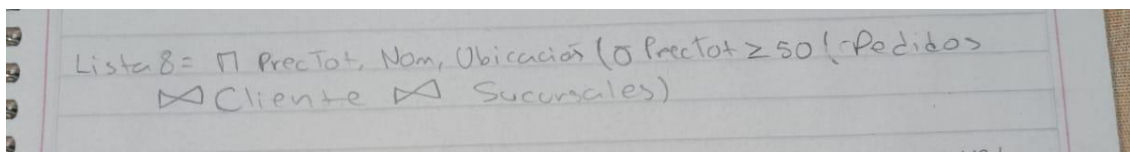 Lista 8 = Π PrecTot, Nom, Ubicación (σ PrectTot ≥ 50 (Pedidos
⋈ Cliente ⋈ Sucursales)